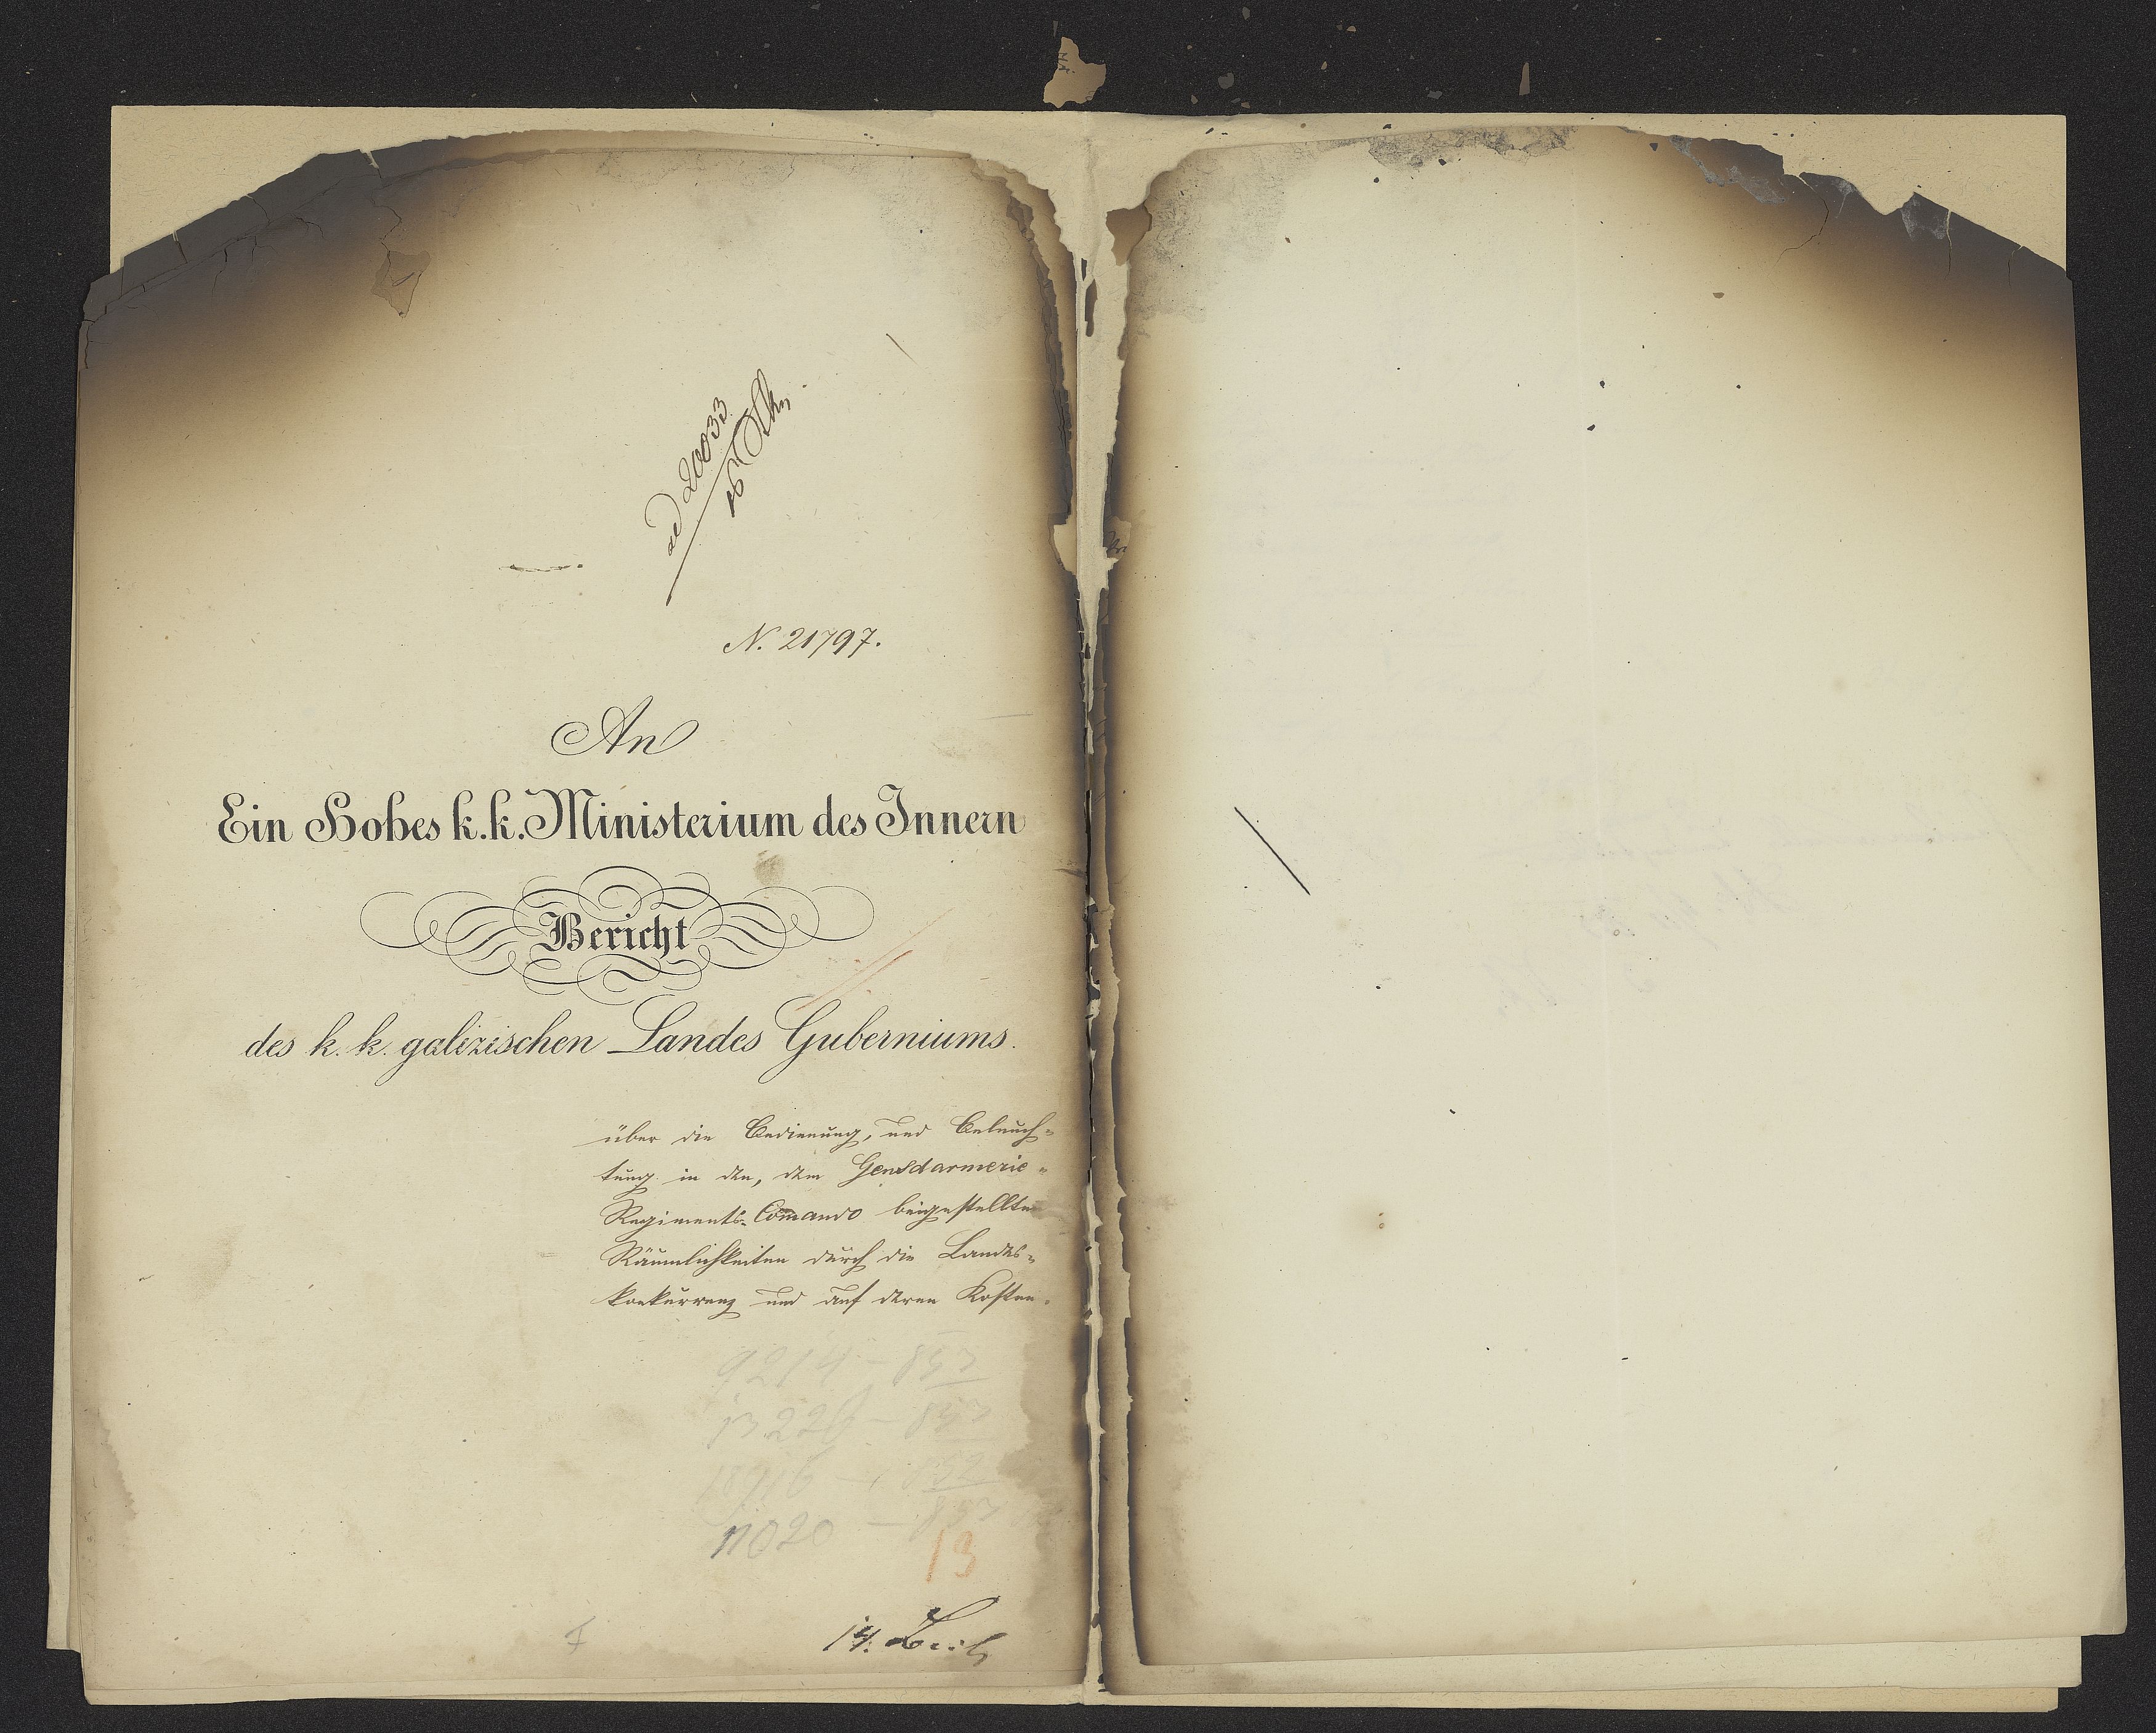 ad 20033
N. 21797.
An
Ein Hohes k.k. Ministerium des Innern
Bericht
des k. k. galizischen Landes Guberniums.
über die Bedienung, und Beleuch=
tung in den, dem Gensdarmerie=
Regiments=Com̄ando beigestellten
Räumlichkeiten durch die Landes=
konkurrenz und auf deren Kosten.
9214 – 853
13226 – 853
– 853
11020 – 853
13
14.